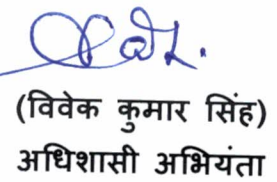 (विवेक कुमार सिंह)
अधिशासी अभियंता